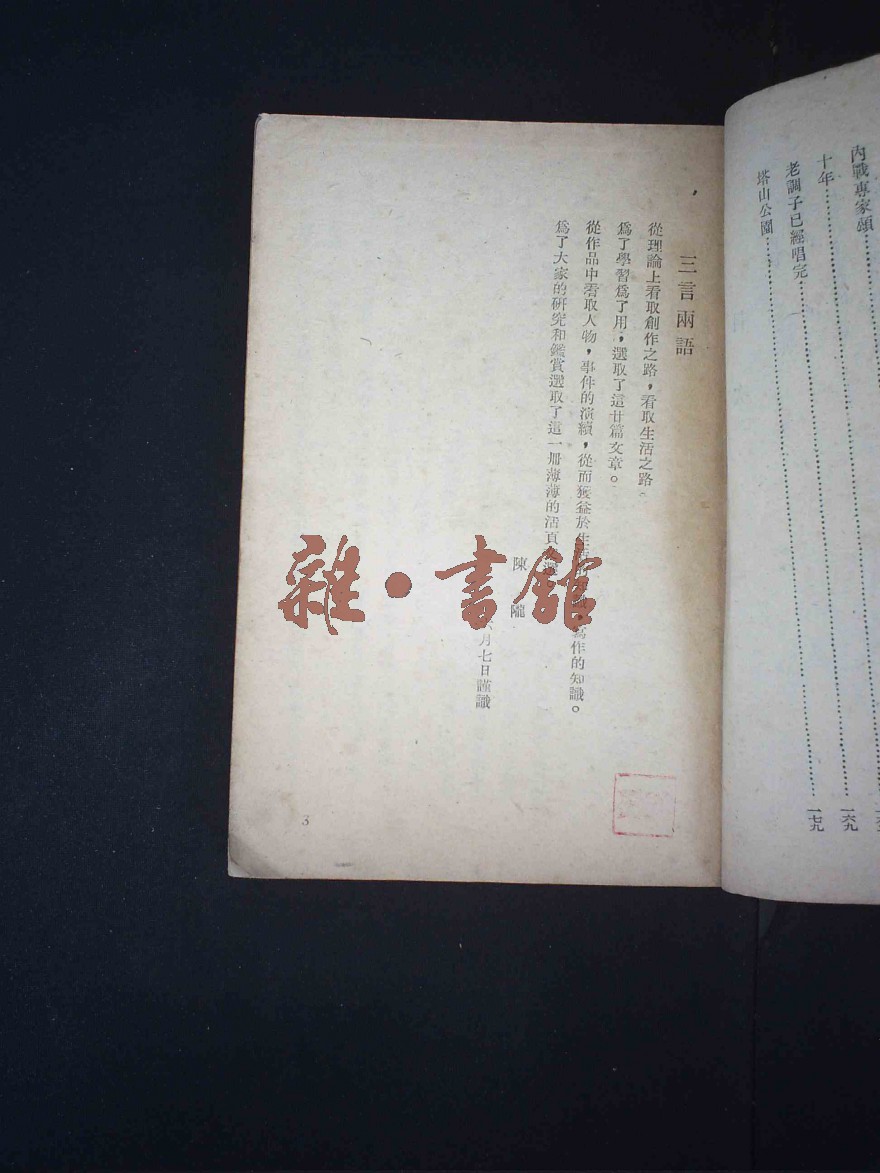 內戰專家頌
十年 一六九
老調子已經唱完 一七九
塔山公園
三言兩語
從理論上看取創作之路，看取生活之路。
爲了學習爲了用，選取了這廿篇文章。
從作品中看取人物，事件的演續，從而獲益於生活 寫作的知識。
爲了大家的研究和鑑賞選取了這一册薄薄的活頁
陳隴
月七日謹識
3
雜·書館